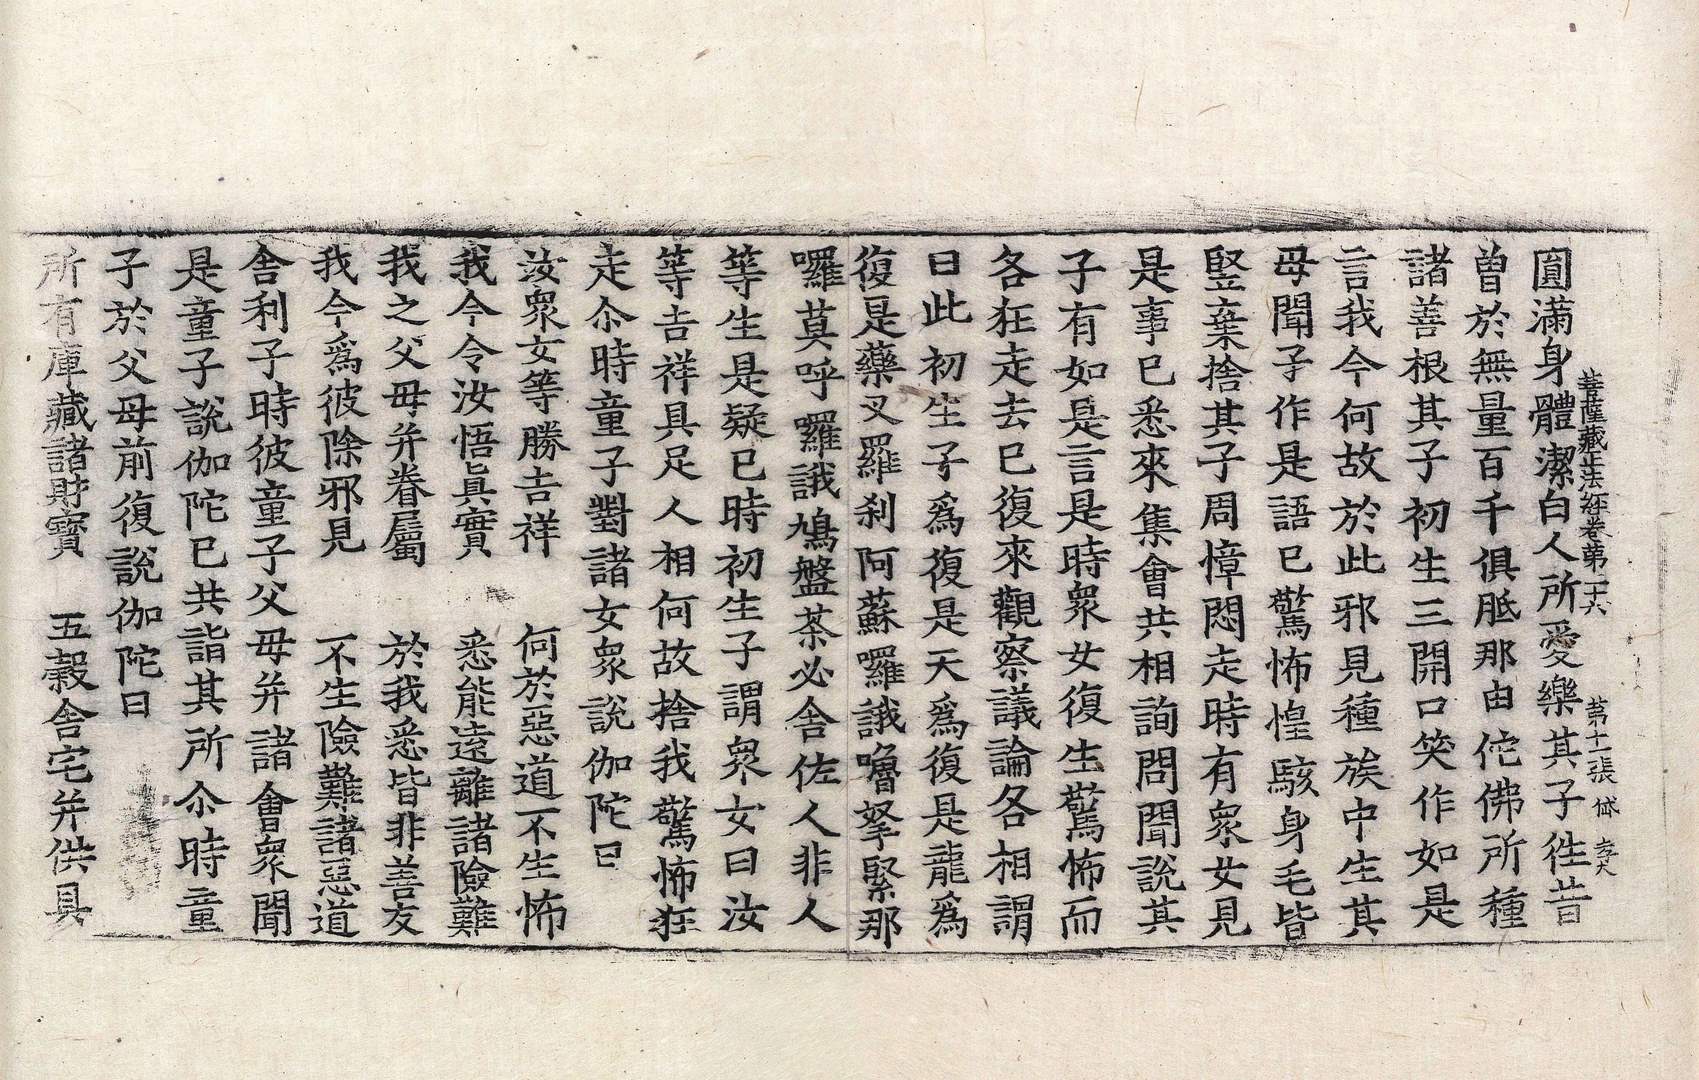 菩薩藏正法經卷第二十六　第十一張　岱
圓滿身體潔白人所愛樂其子徃昔
曾於無量百千俱胝那由佗佛所種
諸善根其子初生三開口笑作如是
言我今何故於此邪見種族中生其
母聞子作是語已驚怖惶駭身毛皆
竪棄捨其子周慞悶走時有衆女見
是事已悉來集會共相詢問聞說其
子有如是言是時衆女復生驚怖而
各狂走去已復來觀察議論各相謂
曰此初生子爲復是天爲復是龍爲
復是藥叉羅刹阿蘇囉誐嚕拏緊那
囉莫呼囉誐鳩盤茶必舍佐人非人
等生是疑已時初生子謂衆女曰汝
等吉祥具足人相何故捨我驚怖狂
走尒時童子對諸女衆說伽陀曰
汝衆女等勝吉祥　何於惡道不生怖
我今令汝悟眞實　悉能遠離諸險難
我之父母并眷屬　於我悉皆非善友
我今爲彼除邪見　不生險難諸惡道
舍利子時彼童子父母并諸會衆聞
是童子說伽陀已共詣其所尒時童
子於父母前復說伽陀曰
所有庫藏諸財寶　五穀舍宅并供具